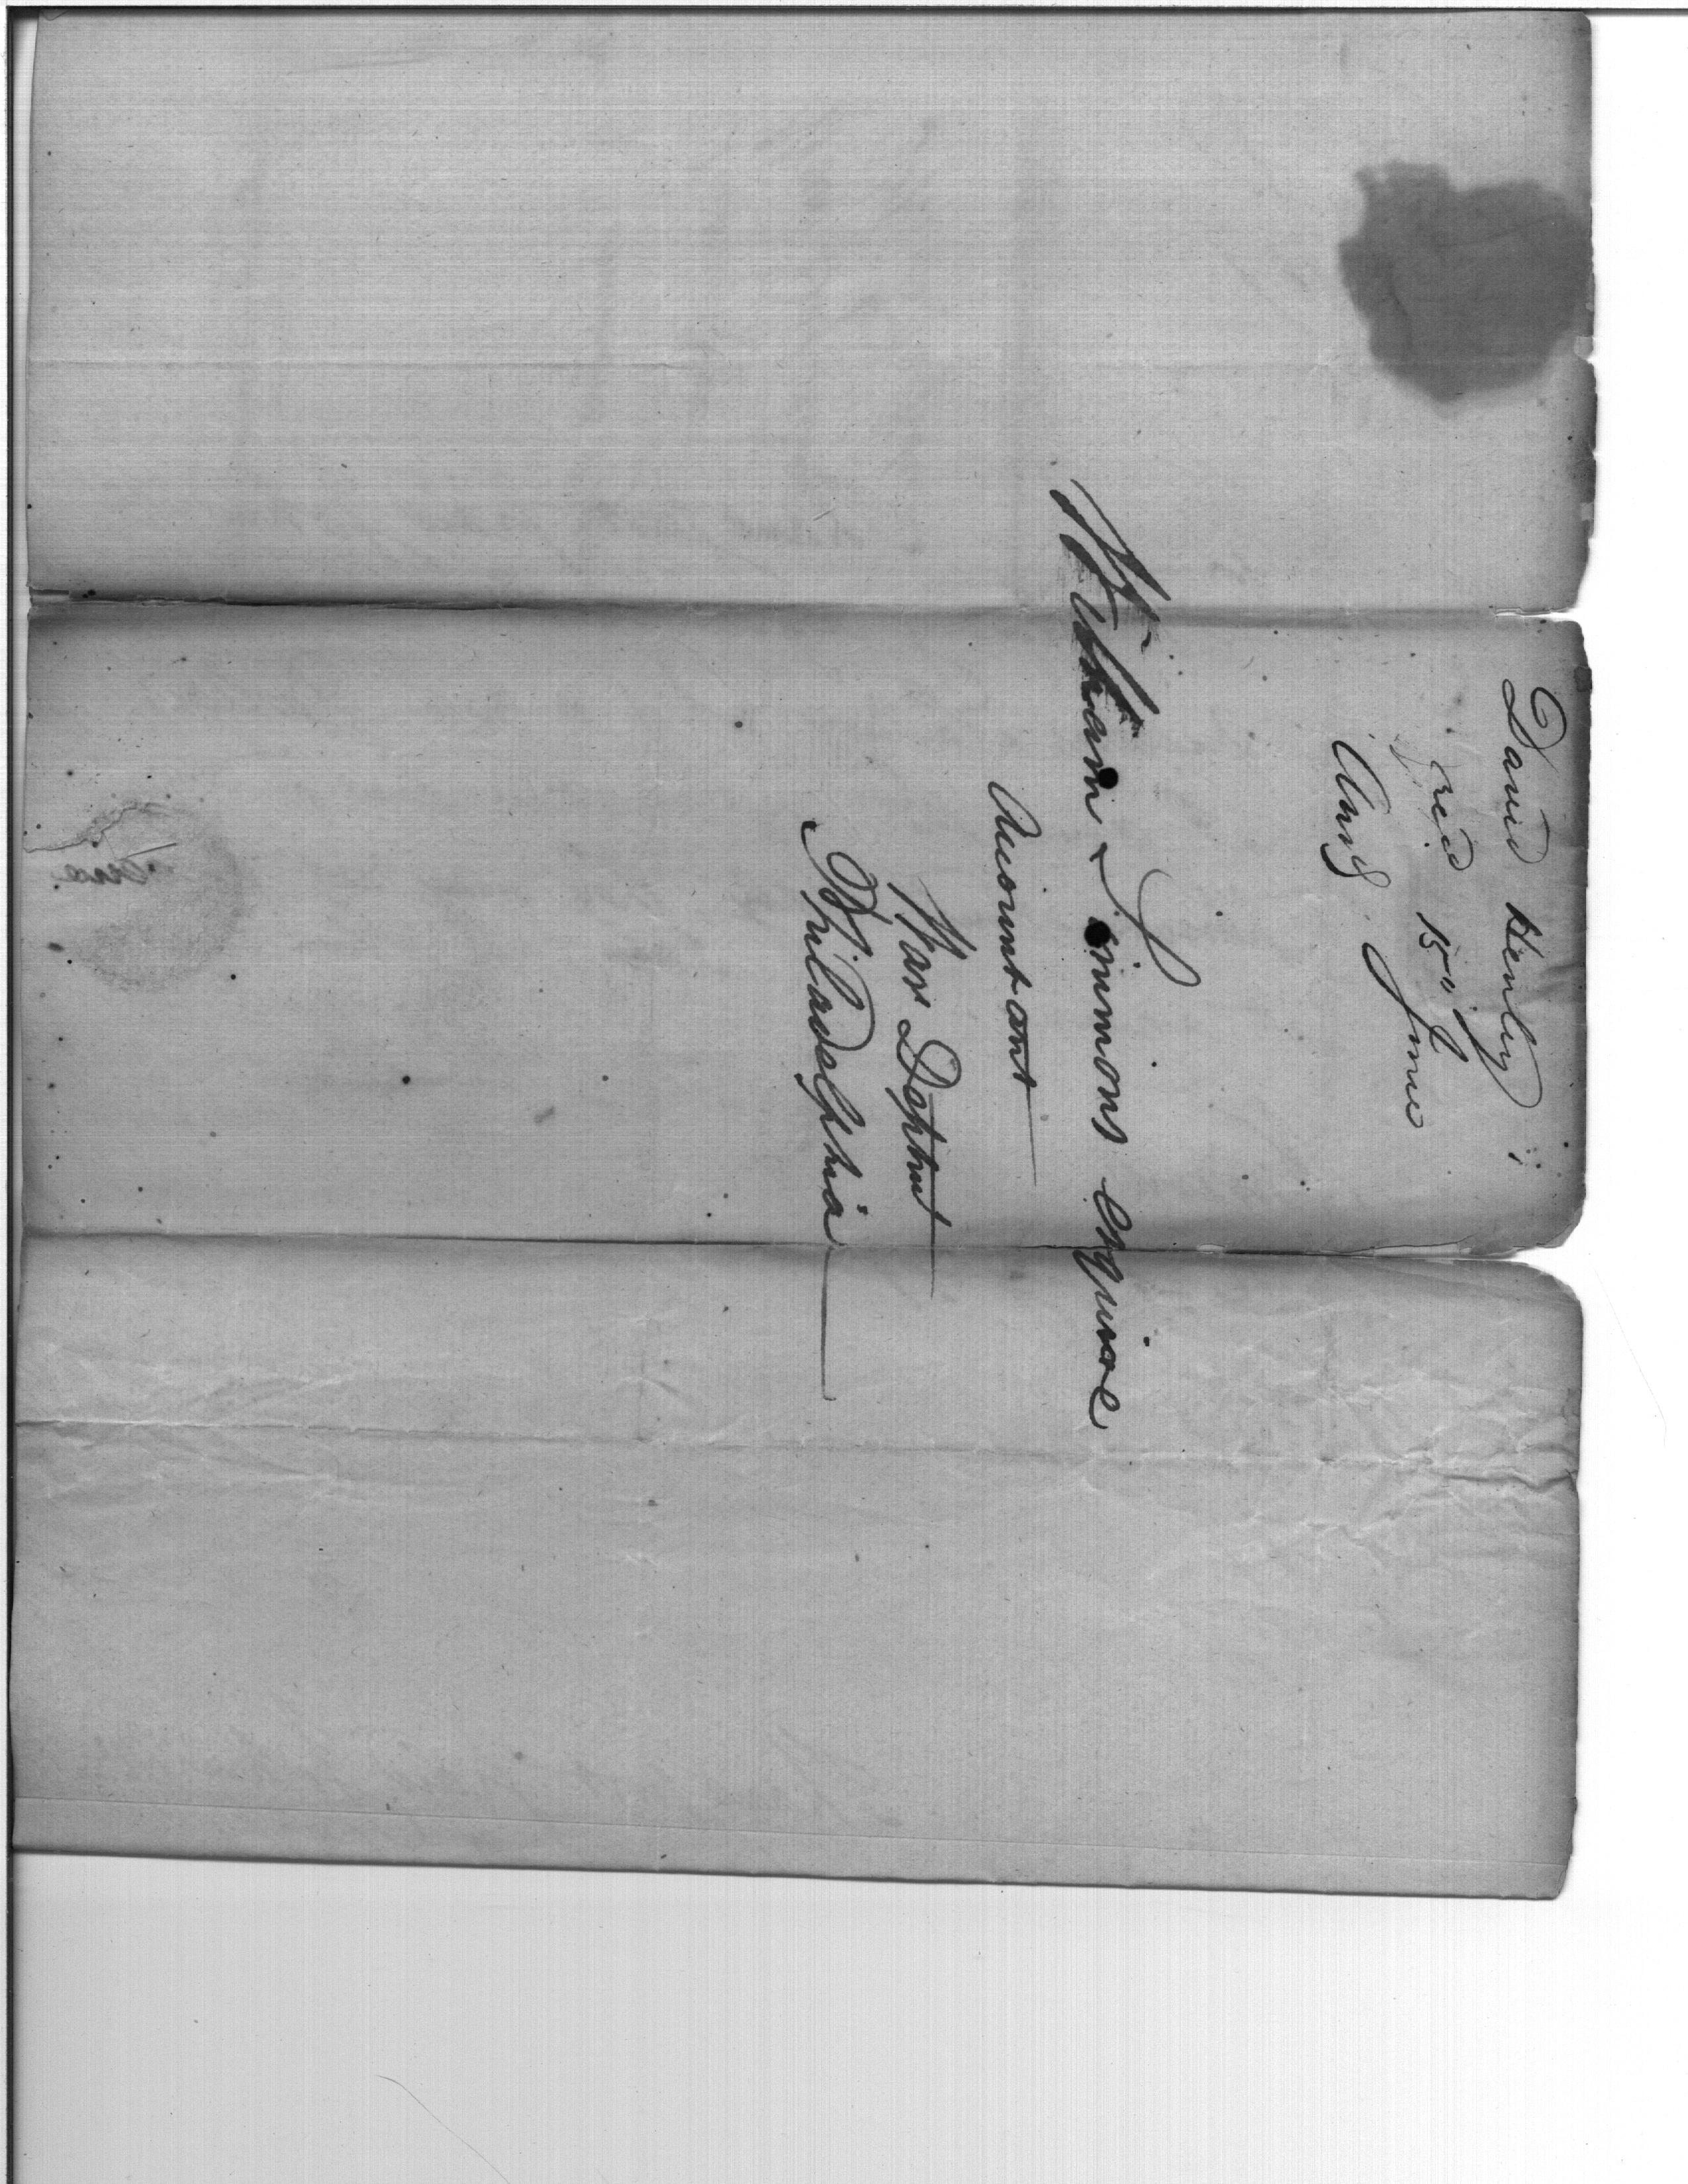 David Henley
recd 15" June
Ansd June
William Simmons esquire
Accountant
War Deptmt
Philadelphia